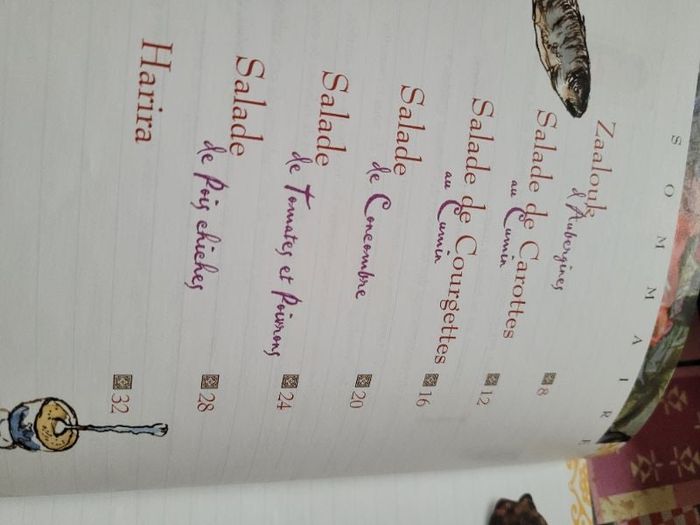 SOMMAIRE
Zaalouk
d'Aubergines 8
Salade de Carottes
au Cumin 12
Salade de Courgettes
au Cumin 16
Salade
de Concombre 20
Salade
de Tomates et Poivrons 24
Salade
de Pois chiches 28
Harira 32